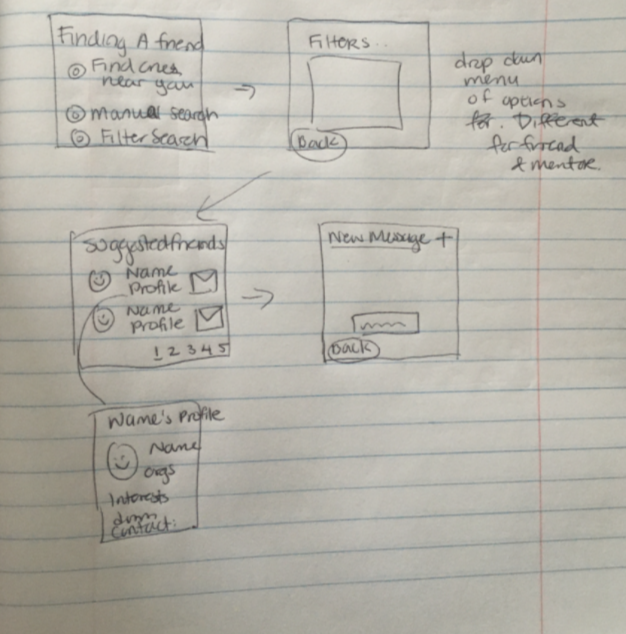 Finding A friend
Find ones
near you
Manual search
Filter Search
Filters..
Back
drop down
menu
of options
for. Different
for friend
& mentor.
Suggested friends
Name
Profile
Name
Profile
1 2 3 4 5
New Message +
Back
Name's Profile
Name
orgs
Interests
contact: